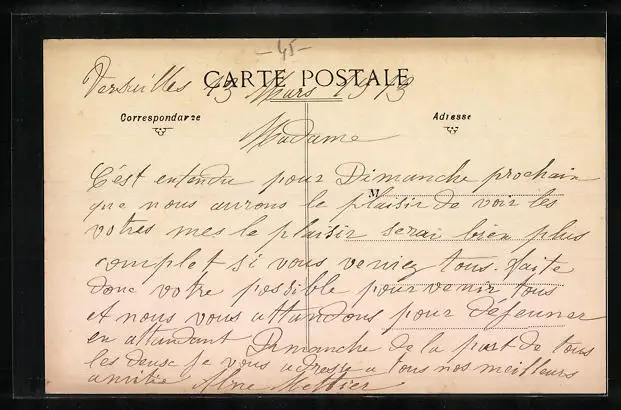 -45-
CARTE POSTALE
Versailles 13 Mars 1913
Correspondance
Adresse
Madame
C'est entendu pour Dimanche prochain
M
que nous aurons le plaisir de voir les
votres mes le plaisir serai bien plus
complet si vous veniez tous. faite
donc votre possible pour venir tous
et nous vous attandons pour déjeuner
en attandant Dimanche de la part de tous
les deux je vous adresse a tous nos meilleurs
amitiés